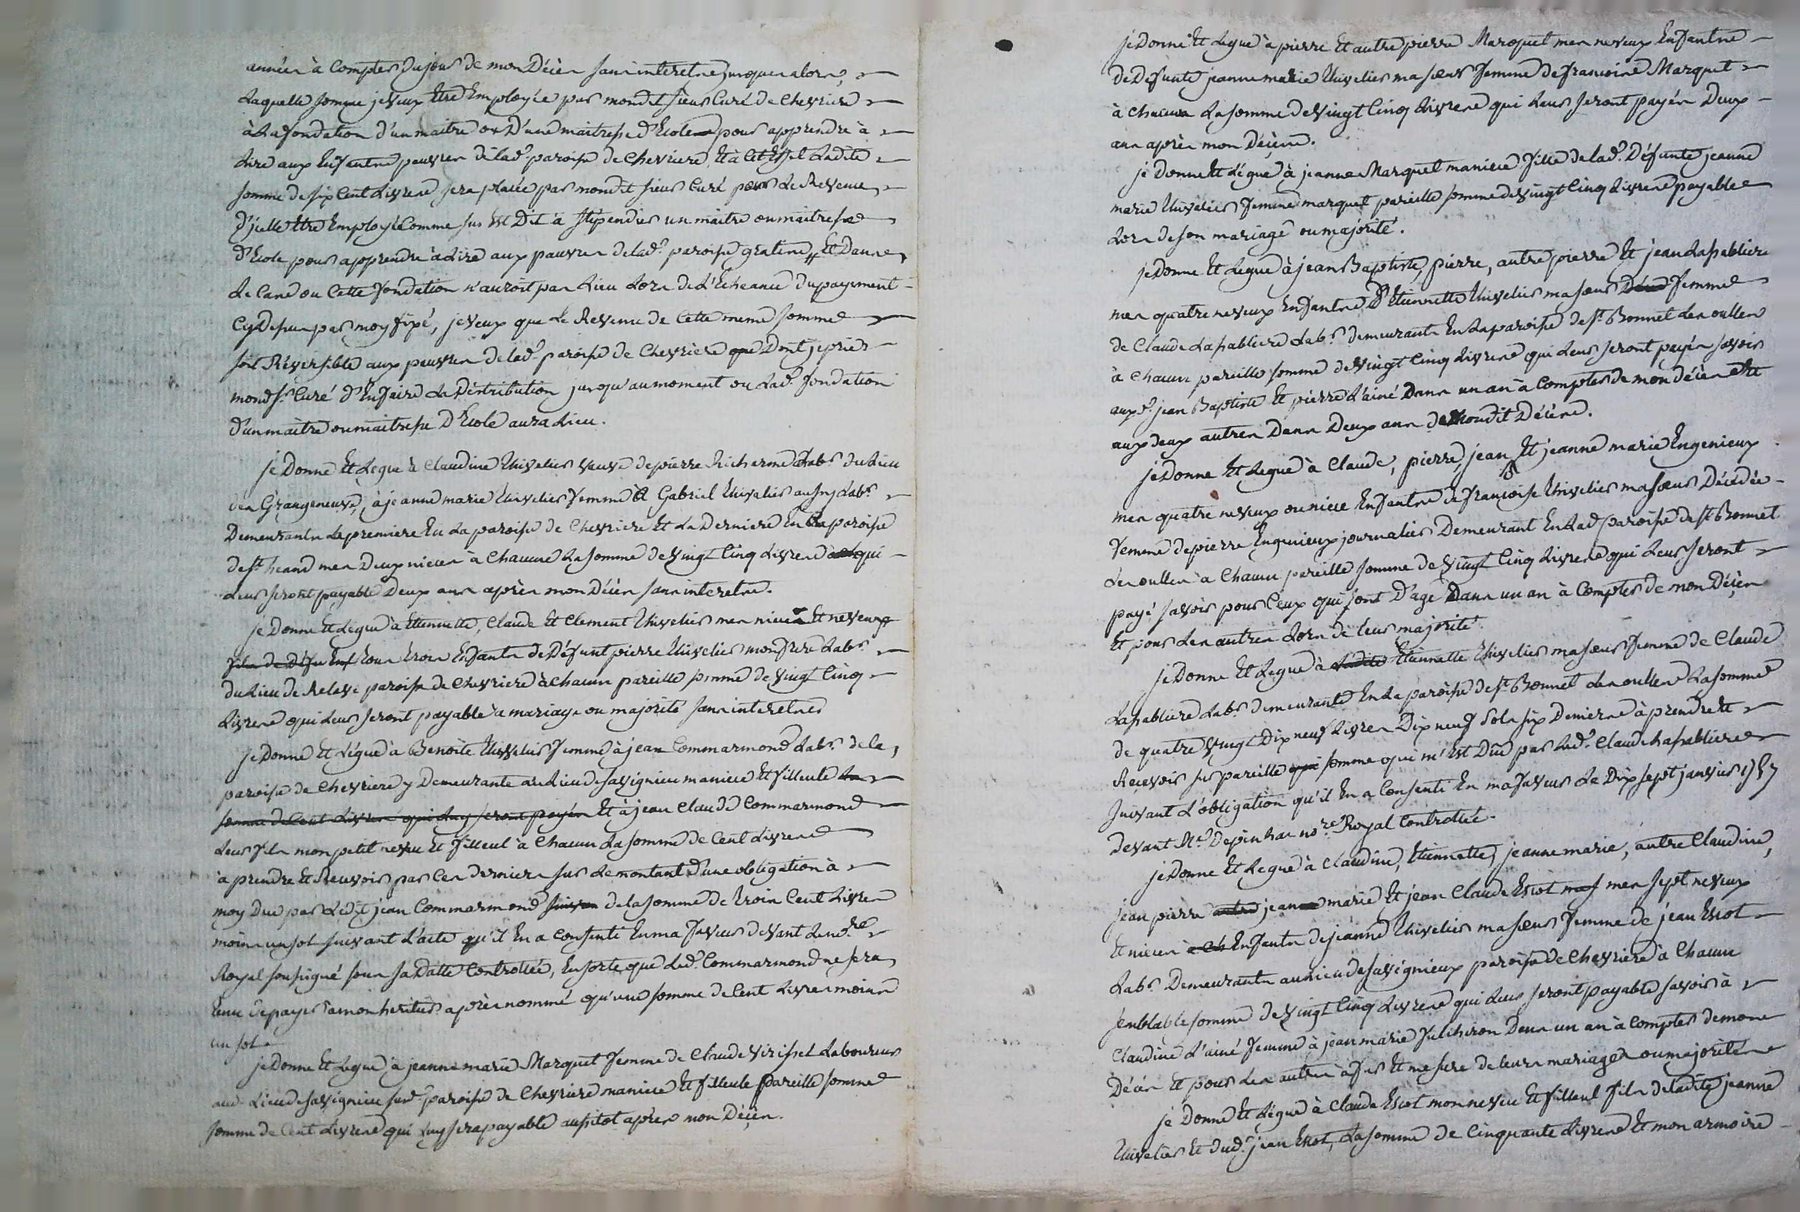 années à compter du jour de mon Décès sans interets jusques alors,
Laquelle somme je veux Etre Employée par mondit sieur Curé de Chevriere
à La fondation d'un maitre ou D'une maitresse d'Ecole pour apprendre à
Lire aux Enfants pauvres de lad.e paroisse de Chevriere Et à Cet Effet Ladite
somme de six Cent Livres sera placée par mondit sieur Curé pour Le Revenu
d'icelle Etre Employé Comme sus Est Dit à stipendier un maitre ou maitresse
d'Ecole pour apprendre à Lire aux pauvres de lad.e paroisse gratis, Et Dans
Le Cas ou Cette fondation n'auroit pas Lieu Lors de L'Echeance du payement
Cy Dessus par moy fixé, je veux que Le Revenu de Cette meme somme
soit Réversible aux pauvres de lad.e paroisse de Chevriere que Dont je prie
mond.sr Curé d'En faire La Distribution jusqu'au moment ou Lad.e fondation
d'un maitre ou maitresse D'Ecole aura Lieu.
je Donne Et Legue à Claudine Thivelier veuve de pierre Richerme Lab.r du Lieu
des Grangeneuve, à jeanne marie Thivelier femme à Gabriel Thivelier aussy Lab.r
Demeurantes La premiere En La paroisse de Chevriere Et La Derniere En La paroisse
de st heand mes Deux nieces à Chacune La somme de vingt Cinq Livres qui
Leurs seront payable Deux ans après mon Décès sans interets.
je Donne Et Legue à Etiennette, Claude Et Clement Thivelier mes niece Et neveux
tous trois Enfants de Défunt pierre Thivelier mon frere Lab.r
du Lieu de Releve paroisse de Chevriere à Chacun pareille somme de vingt Cinq
Livres qui Leurs seront payable à mariage ou majorité sans interets
je Donne Et Légue à Benoite Thivelier femme à jean Commarmond Lab.r de la
paroisse de Chevriere y Demeurante au Lieu de savignieu ma niece Et filleule La
somme de Cent Livres qui Luy seront payés Et à jean Claude Commarmond
Leur fils mon petit neveu Et filleul à Chacun La somme de Cent Livres
à prendre Et Recevoir par Ces derniers sur Le montant d'une obligation à
moy Due par Ledit jean Commarmond suivan de la somme de trois Cent Livres
moins un sol suivant L'acte qu'il En a Consenti En ma faveur devant Le no.re
Royal soussigné sous sa Datte Controllée, En sorte que Led. Commarmond ne sera
tenu de payer à mon heritier après nommé qu'une somme de Cent Livres moins
un sol
je Donne Et Legue à jeanne marie Marquet femme de Claude Laboureur
aud. Lieu de savignieu sus.e paroisse de Chevriere ma niece Et filleule pareille somme
somme de Cent Livres qui Luy sera payable aussitot après mon Décès.
je Donne Et Legue à pierre Et autre pierre Marquet mes neveux Enfants
de Defunte jeanne marie Thivelier ma sœur femme de francoise Marquet
à chacun La somme de vingt Cinq Livres qui Leur seront payés Deux
ans après mon Décès.
je Donne Et Légue à jeanne Marquet ma niece fille de lad.e Défunte jeanne
marie Thivelier femme marquet pareille somme de vingt Cinq Livres payable
Lors de son mariage ou majorité.
je Donne Et Legue à jean Baptiste, pierre, autre pierre Et jean Lafabliere
mes quatre neveux Enfants D'Etiennette Thivelier ma sœur femme
de Claude Lafabliere Lab.r demeurants En La paroisse de st. Bonnet Les oulles
à Chacun pareille somme de vingt Cinq Livres qui Leur seront payés savoir
aux.d. jean Baptiste Et pierre L'ainé Dans un an à Compter de mon décès Et
aux deux autres Dans Deux ans de mondit Décès.
je Donne Et Legue à Claude, pierre, jean Et jeanne marie Engenieux
mes quatre neveux ou niece Enfants de francoise Thivelier ma sœur Décédée
femme de pierre Engenieux journalier Demeurant En Lad. paroisse de st Bonnet
Les oulles à Chacun pareille somme de vingt Cinq Livres qui Leur seront
payé savoir pour Ceux qui sont D'age Dans un an à Compter de mon Décès
Et pour Les autres Lors de leur majorité.
je Donne Et Legue à Ladite Etiennette Thivelier ma sœur femme de Claude
Lafabliere Lab.r demeurante En La paroisse de st. Bonnet Les oulles La somme
de quatre vingt Dix neuf Livres Dix neuf sols six Deniers à prendre Et
Recevoir sur pareille qui somme qui m'Est Due par Led. Claude Lafabliere
suivant L'obligation qu'il En a Consenti En ma faveur Le Dix sept janvier 1787
devant M.e Depinhac no.re Royal Controllée.
je Donne Et Legue à Claudine, Etiennette, jeanne marie, autre Claudine,
jean pierre autre jeanne marie Et jean Claude Escot mes sept neveux
Et nieces à Ch Enfants de jeanne Thivelier ma sœur femme de jean Escot
Lab.r Demeurants au Lieu de savignieux paroisse de Chevriere à Chacun
semblable somme de vingt Cinq Livres qui Leur seront payable savoir à
Claudine L'ainé femme à jean marie Dans un an à Compter de mon
Décès Et pour Les autres à fur Et mesure de leurs mariages ou majorités
je Donne Et Légue à Claude Escot mon neveu Et filleul fils de ladite jeanne
Thivelier Et dud.t jean Escot, La somme de Cinquante Livres Et mon armoire